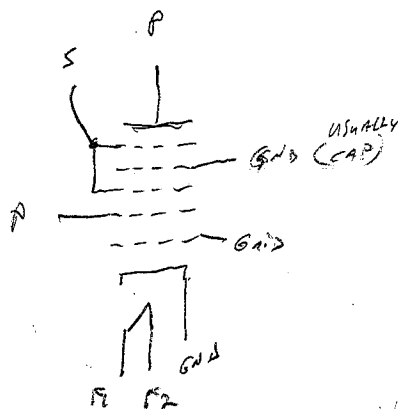 P
S
USUALLY
GND (CAP)
P
GRID
GND
F1 F2